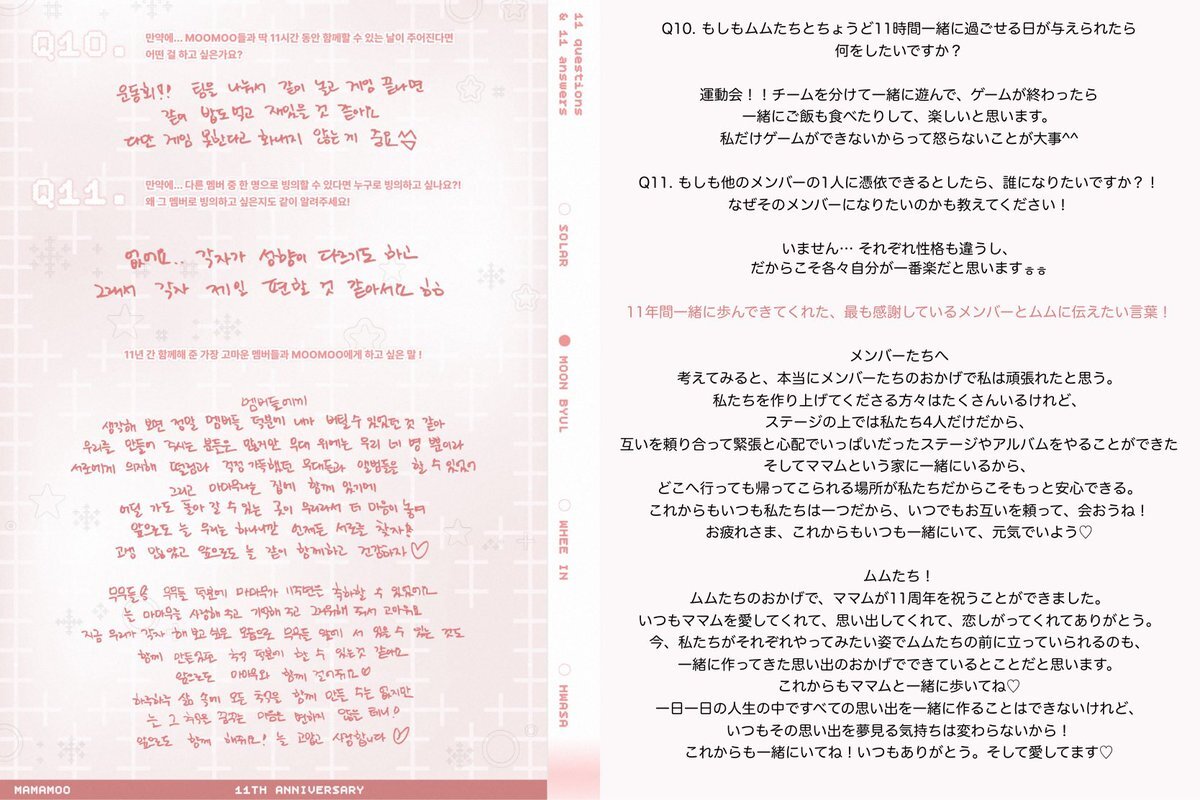 Q10.
만약에... MOOMOO들과 딱 11시간 동안 함께할 수 있는 날이 주어진다면
어떤 걸 하고 싶은가요?
운동회!! 팀을 나눠서 같이 놀고 게임 끝나면
같이 밥도 먹고 재밌을 것 같아요
다만 게임 못한다고 화내지 않는 게 중요^^
Q11.
만약에... 다른 멤버 중 한 명으로 빙의할 수 있다면 누구로 빙의하고 싶나요?!
왜 그 멤버로 빙의하고 싶은지도 같이 알려주세요!
없어요.. 각자가 성향이 다르기도 하고
그래서 각자 제일 편할 것 같아서요 ㅎㅎ
11년 간 함께해 준 가장 고마운 멤버들과 MOOMOO에게 하고 싶은 말 !
멤버들에게
생각해 보면 정말 멤버들 덕분에 내가 버틸 수 있었던 것 같아
우리를 만들어 주시는 분들은 많지만 무대 위에는 우리 네 명 뿐이라
서로에게 의지해 떨림과 걱정 가득했던 무대들과 앨범들을 할 수 있었어
그리고 마마무라는 집에 함께 있기에
어딜 가도 돌아 갈 수 있는 곳이 우리라서 더 마음이 놓여
앞으로도 늘 우리는 하나니깐 언제든 서로를 찾자!
고생 많았고 앞으로도 늘 같이 함께하고 건강하자♡
무무들 무무들 덕분에 마마무가 11주년을 축하할 수 있었어요
늘 마마무를 사랑해 주고 기억해 주고 그리워해 줘서 고마워요
지금 우리가 각자 해 보고 싶은 모습으로 무무들 앞에 서 있을 수 있는 것도
함께 만든 추억 덕분에 할 수 있는것 같아요
앞으로도 마마무와 함께 걸어줘요♡
하루하루 삶 속에 모든 추억을 함께 만들 수는 없지만
늘 그 추억을 꿈꾸는 마음은 변하지 않을 테니!
앞으로도 함께 해줘요! 늘 고맙고 사랑합니다♡
MAMAMOO
11TH ANNIVERSARY
11 questions
& 11 answers
SOLAR
MOON BYUL
WHEE IN
HWASA
Q10. もしもムムたちとちょうど11時間一緒に過ごせる日が与えられたら
何をしたいですか？
運動会！！チームを分けて一緒に遊んで、ゲームが終わったら
一緒にご飯も食べたりして、楽しいと思います。
私だけゲームができないからって怒らないことが大事^^
Q11. もしも他のメンバーの1人に憑依できるとしたら、誰になりたいですか？！
なぜそのメンバーになりたいのかも教えてください！
いません… それぞれ性格も違うし、
だからこそ各々自分が一番楽だと思いますㅎㅎ
11年間一緒に歩んできてくれた、最も感謝しているメンバーとムムに伝えたい言葉！
メンバーたちへ
考えてみると、本当にメンバーたちのおかげで私は頑張れたと思う。
私たちを作り上げてくださる方々はたくさんいるけれど、
ステージの上では私たち4人だけだから、
互いを頼り合って緊張と心配でいっぱいだったステージやアルバムをやることができた
そしてママムという家に一緒にいるから、
どこへ行っても帰ってこられる場所が私たちだからこそもっと安心できる。
これからもいつも私たちは一つだから、いつでもお互いを頼って、会おうね！
お疲れさま、これからもいつも一緒にいて、元気でいよう♡
ムムたち！
ムムたちのおかげで、ママムが11周年を祝うことができました。
いつもママムを愛してくれて、思い出してくれて、恋しがってくれてありがとう。
今、私たちがそれぞれやってみたい姿でムムたちの前に立っていられるのも、
一緒に作ってきた思い出のおかげでできているとことだと思います。
これからもママムと一緒に歩いてね♡
一日一日の人生の中ですべての思い出を一緒に作ることはできないけれど、
いつもその思い出を夢見る気持ちは変わらないから！
これからも一緒にいてね！いつもありがとう。そして愛してます♡